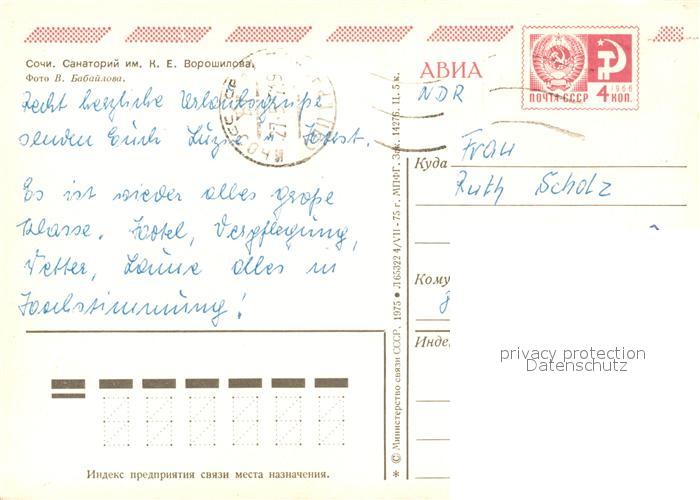 Сочи. Санаторий им. К. Е. Ворошилова.
Фото В. Бабайлова.
АВИА
ПОЧТА СССР 4 КОП.
1966
Recht herzliche Urlaubsgrüße
senden Horst.
Es ist wieder alles große
Klasse. Hotel, Verpflegung,
Wetter, Laune alles in
Hochstimmung!
NDR
Куда
Frau
Ruth Scholz
Кому
8
Инде
privacy protection
Datenschutz
© Министерство связи СССР, 1975 • Л 65322 4/VII - 75 г. МПФГ. Зак. 14276. Ц. 5 к.
Индекс предприятия связи места назначения.